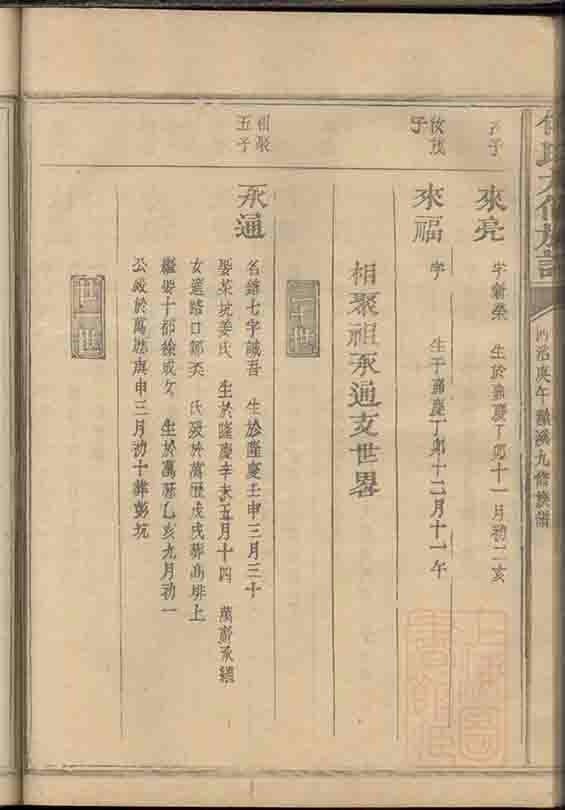 同治庚午 九修族譜
子
來亮 字新榮 生於嘉慶丁卯十一月初二亥
子
來福 字 生于嘉慶丁卯十二月十一午
相聚祖承通支世畧
二十世
相聚
五子
承通 名 七字誠吾 生於隆慶壬申三月三十
娶茶坑姜氏 生於隆慶辛未五月十四 萬 承繼
女適路口 氏 歿於萬歷戊戌葬 排上
繼娶十都徐成女 生於萬歷乙亥九月初一
公歿於萬歷庚申三月初十葬彭坑
廿一世